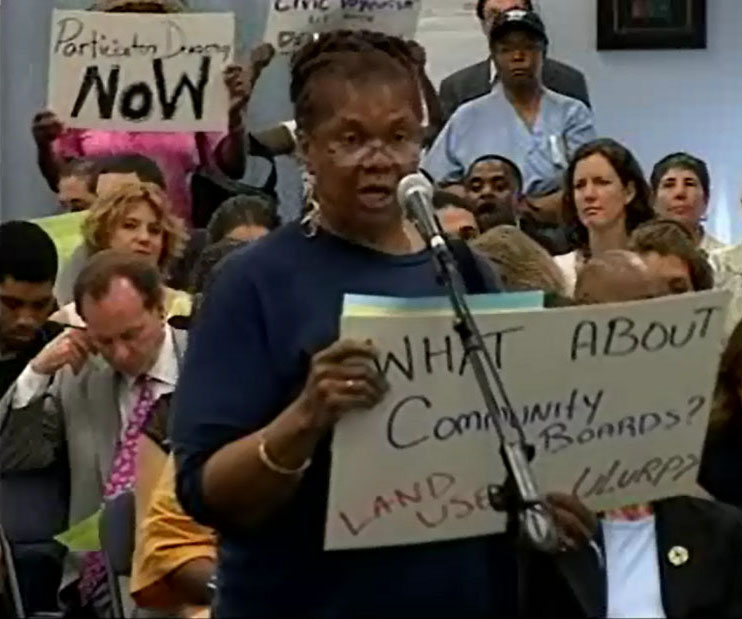 Participatory Democracy
NOW
CIVIC
WHAT ABOUT
COMMUNITY
BOARDS?
LAND
USE
ULURP?